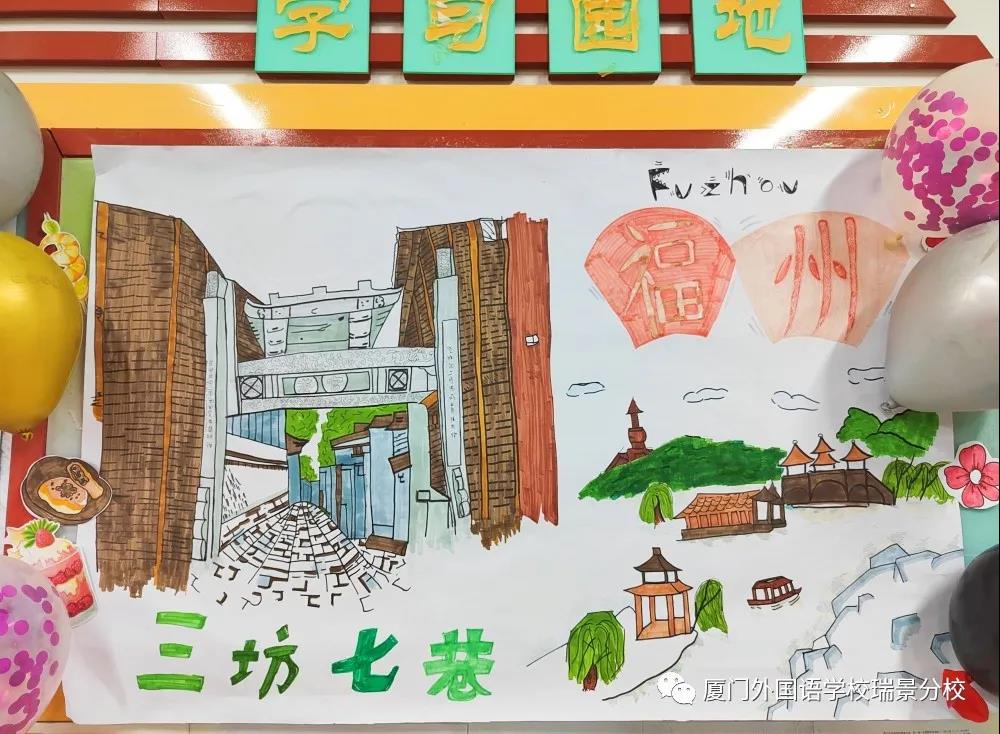 学习园地
Fuzhou
福州
三坊七巷
厦门外国语学校瑞景分校